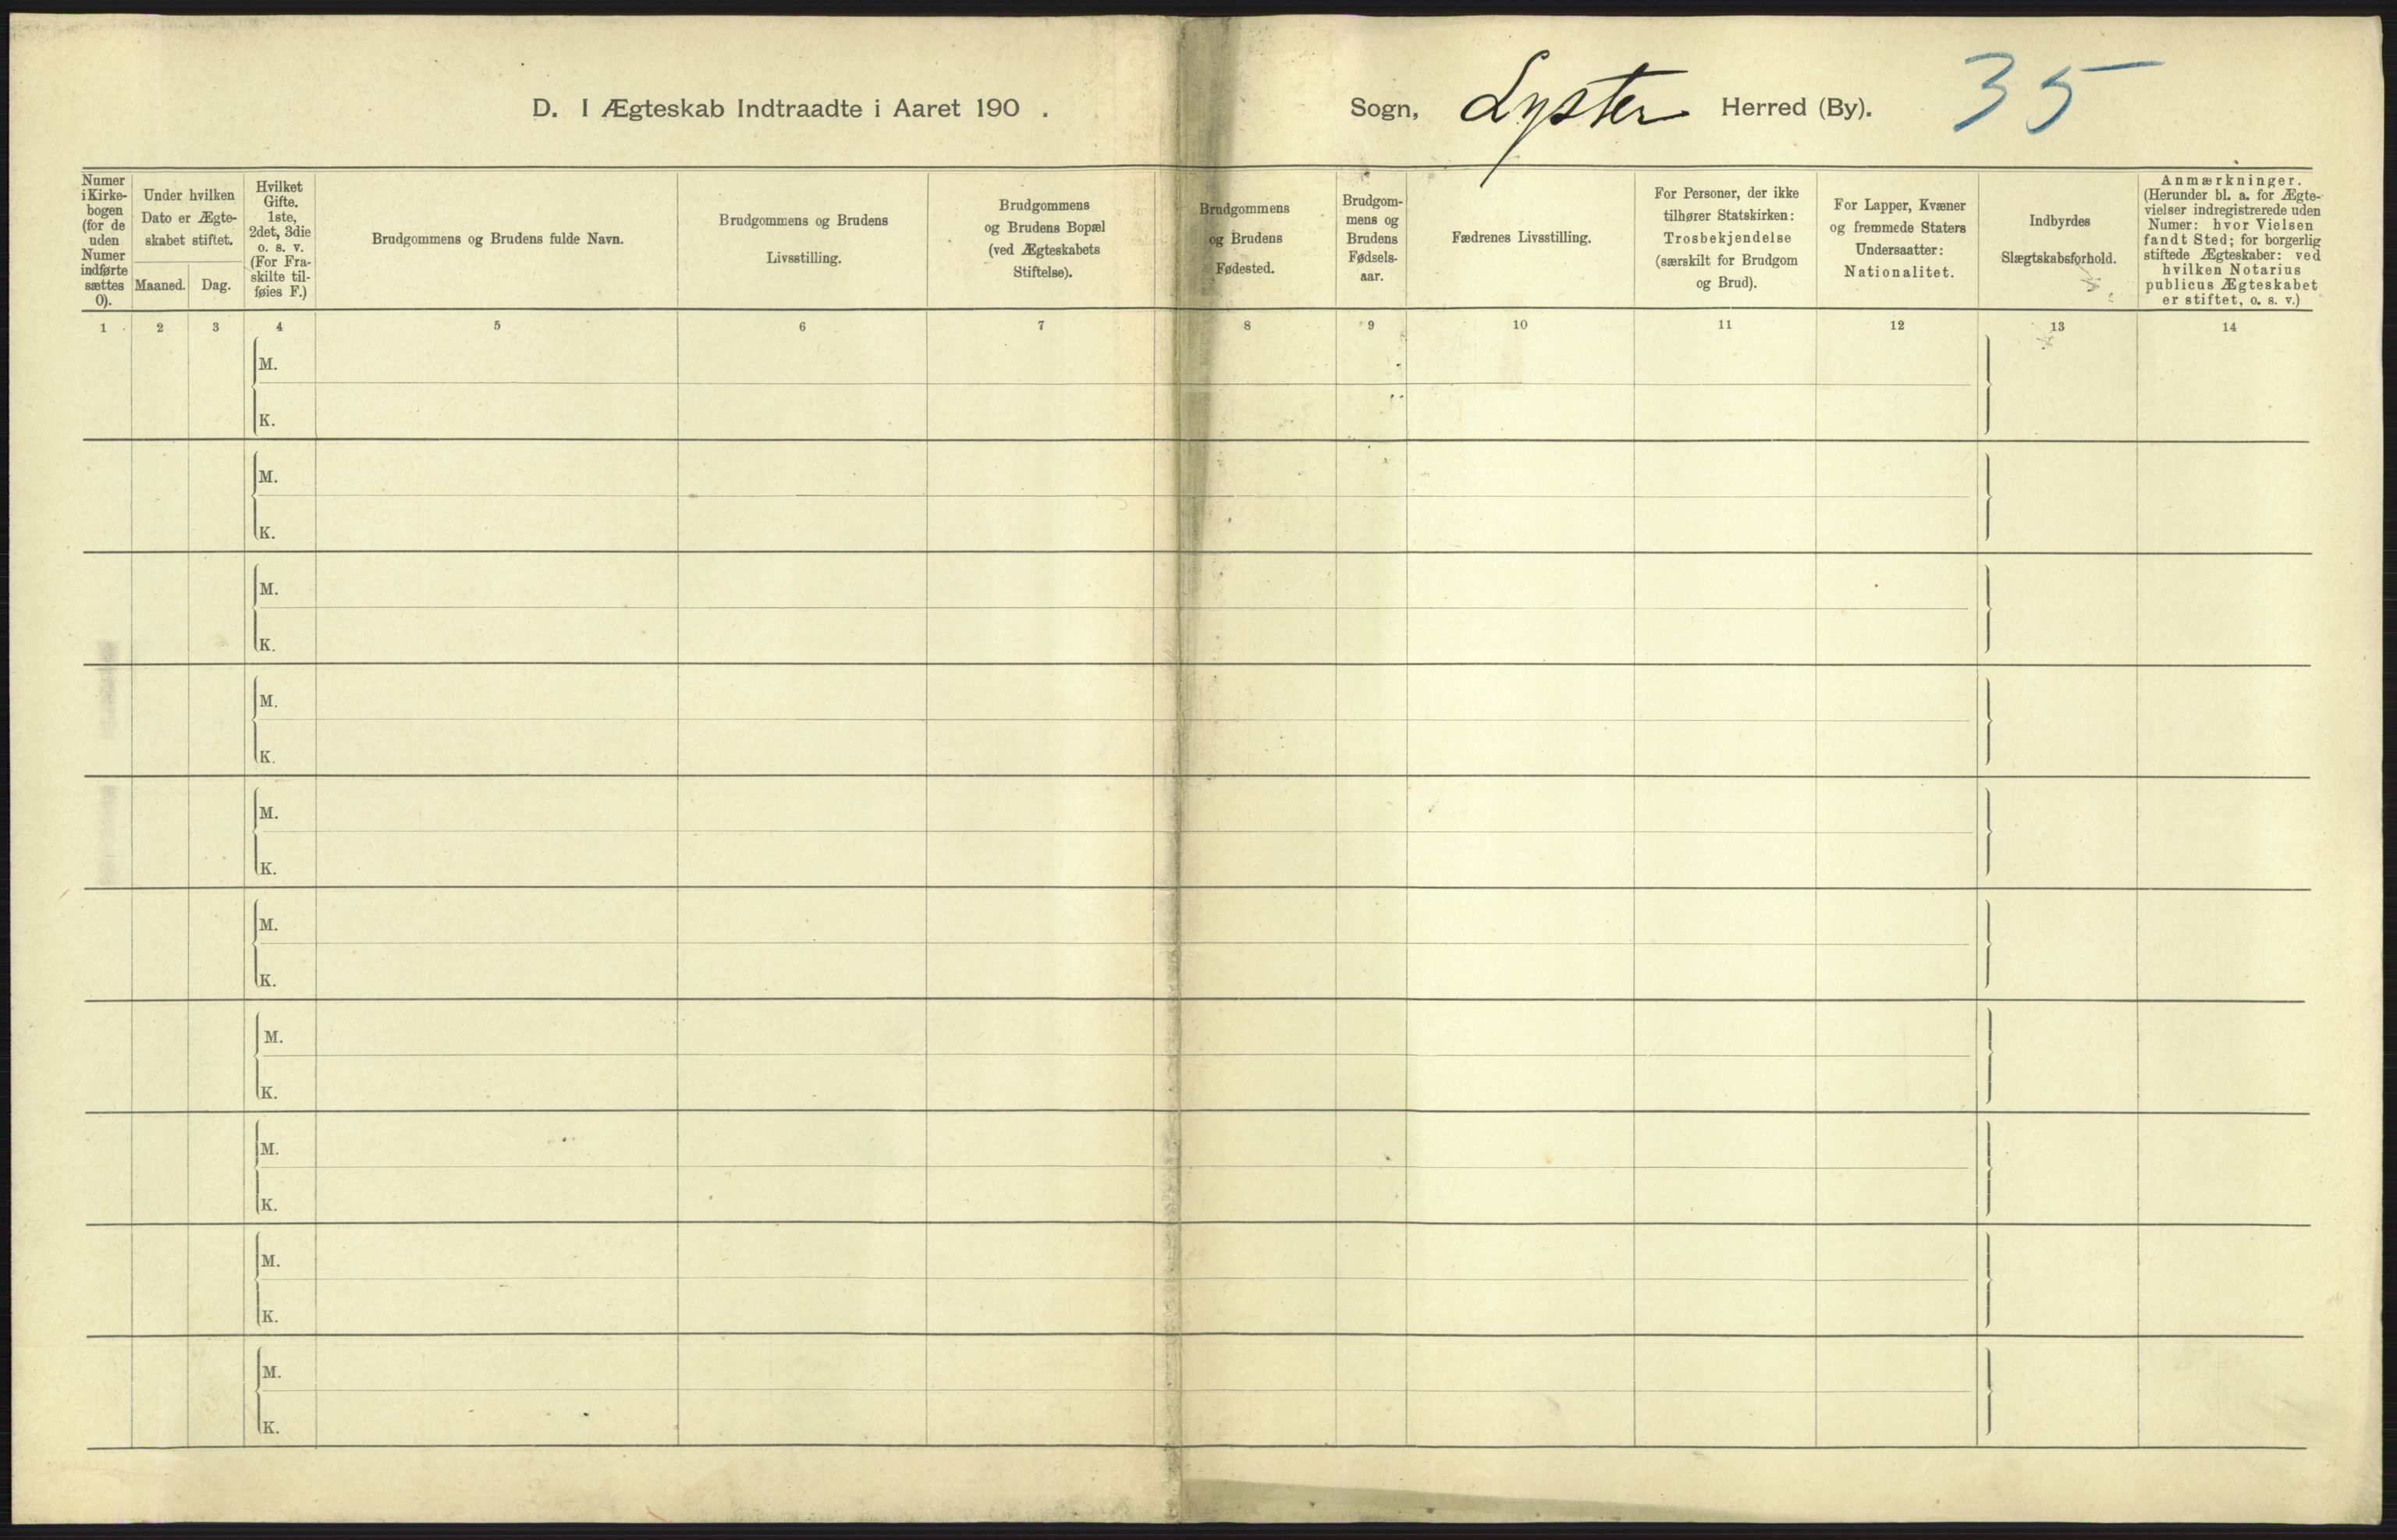 D. I Ægteskab Indtraadte i Aaret 190 .
Sogn, Lyster Herred (By). 35
Numer
i Kirke-
bogen
(for de
uden
Numer
indførte
sættes
0).
Under hvilken
Dato er Ægte-
skabet stiftet.
Maaned. Dag.
Hvilket
Gifte.
1ste,
2det, 3die
o. s. v.
(For Fra-
skilte til-
føies F.)
Brudgommens og Brudens fulde Navn.
Brudgommens og Brudens
Livsstilling.
Brudgommens
og Brudens Bopæl
(ved Ægteskabets
Stiftelse).
Brudgommens
og Brudens
Fødested.
Brudgom-
mens og
Brudens
Fødsels-
aar.
Fædrenes Livsstilling.
For Personer, der ikke
tilhører Statskirken:
Trosbekjendelse
(særskilt for Brudgom
og Brud).
For Lapper, Kvæner
og fremmede Staters
Undersaatter:
Nationalitet.
Indbyrdes
Slægtskabsforhold.
Anmærkninger.
(Herunder bl. a. for Ægte-
vielser indregistrerede uden
Numer: hvor Vielsen
fandt Sted; for borgerlig
stiftede Ægteskaber: ved
hvilken Notarius
publicus Ægteskabet
er stiftet, o. s. v.)
1 2 3 4 5 6 7 8 9 10 11 12 13 14
M.
K.
M.
K.
M.
K.
M.
K.
M.
K.
M.
K.
M.
K.
M.
K.
M.
K.
M.
K.